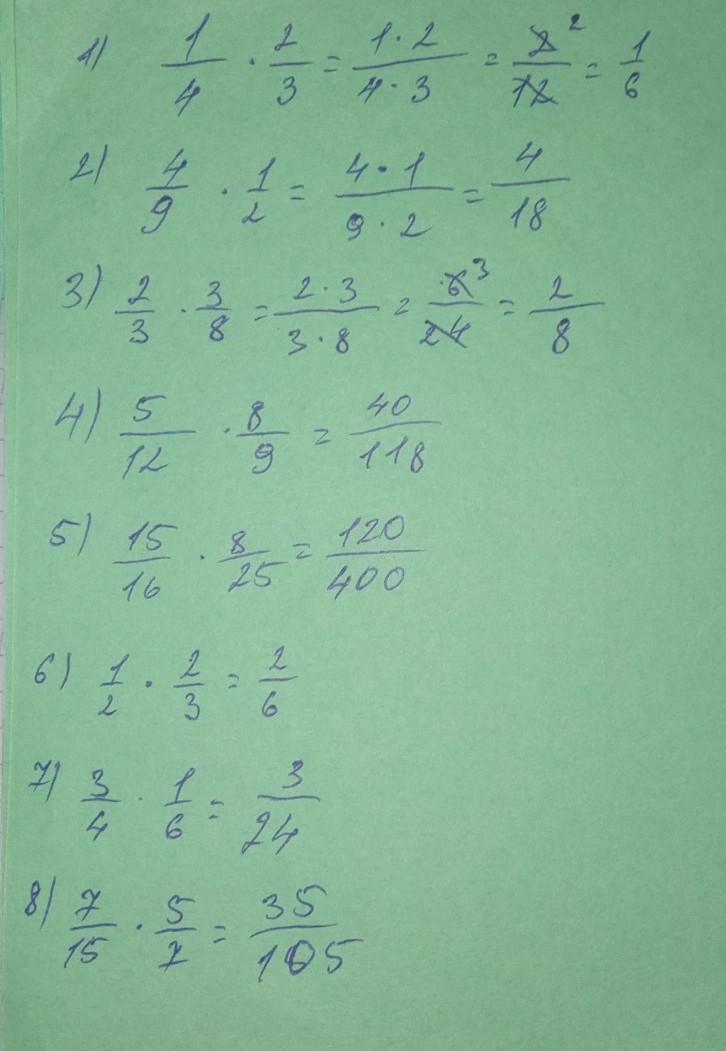 1) 1/4 · 2/3 = 1·2/4·3 = 2/12 ² = 1/6
2) 4/9 · 1/2 = 4·1/9·2 = 4/18
3) 2/3 · 3/8 = 2·3/3·8 = 6/24 ³ = 2/8
4) 5/12 · 8/9 = 40/118
5) 15/16 · 8/25 = 120/400
6) 1/2 · 2/3 = 2/6
7) 3/4 · 1/6 = 3/24
8) 7/15 · 5/7 = 35/105